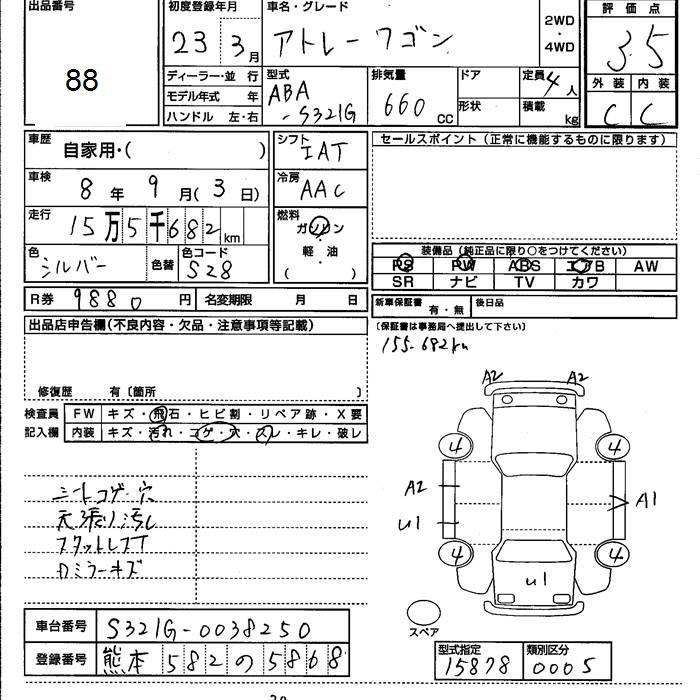 出品番号 88
初度登録年月 23 3月
車名・グレード アトレーワゴン
2WD・4WD
評価点 3.5
外装 C 内装 C
ディーラー・並行
モデル年式 年
ハンドル 左・右
型式 ABA-S321G
排気量 660cc
ドア
形状
定員 4人
積載 kg
車歴 自家用・( )
シフト IAT
車検 8年9月(3日)
冷房 AAC
走行 15万5千682km
燃料 ガソリン・軽油 ( )
色 シルバー 色替 色コード S28
R券 9880円 名変期限 月 日
セールスポイント(正常に機能するものに限ります)
装備品(純正品に限り○をつけてください)
PS PW ABS エアB AW
SR ナビ TV カワ
新車保証書 有・無 後日品
〔保証書は事務局へ提出して下さい〕
155-682km
出品店申告欄(不良内容・欠品・注意事項等記載)
修復歴 有〔箇所 〕
検査員 FW キズ・飛石・ヒビ割・リペア跡・X要
記入欄 内装 キズ・汚れ・コゲ・穴・スレ・キレ・破レ
シートコゲ穴
天張り汚レ
スタットレスT
Dミラーキズ
A2 A2
4 4
A2 A1
U1
4 4
U1
スペア
車台番号 S321G-0038250
登録番号 熊本 582 の 5868
型式指定 15878
類別区分 0005